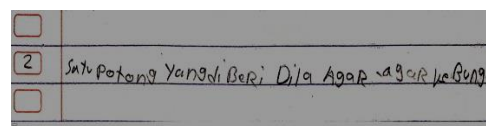 2 Satu Potong YangdiBeRi Dila AgaR -agaR keBung